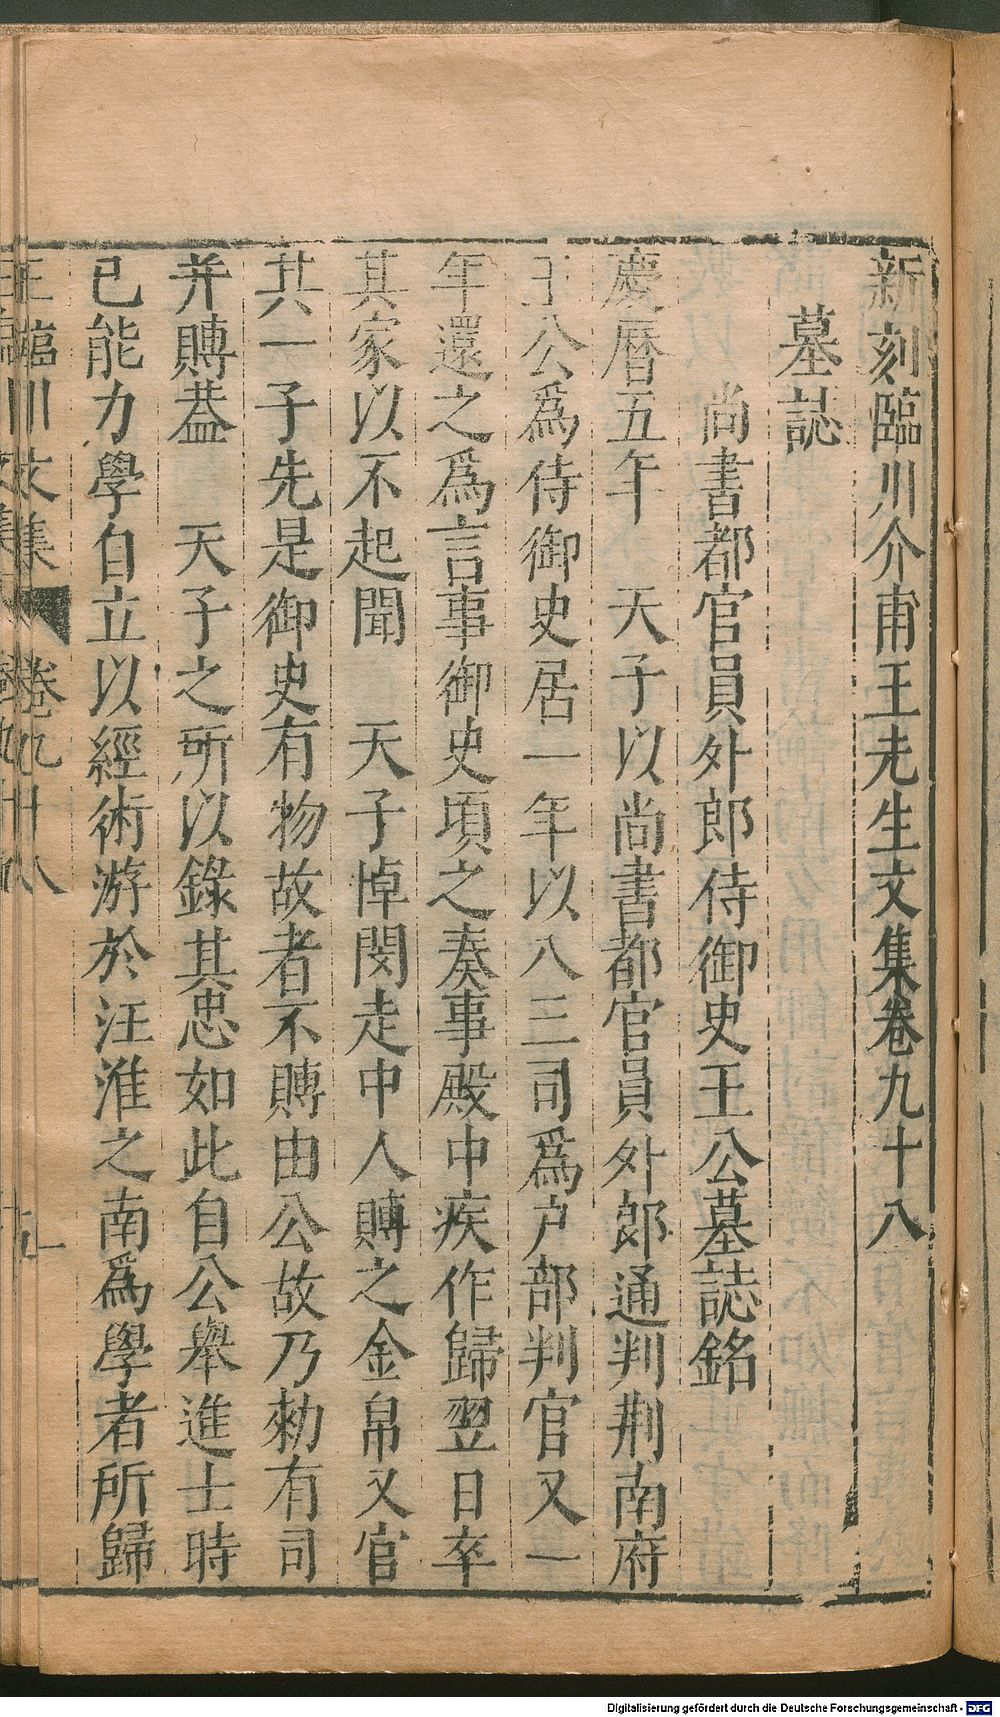 新刻臨川介甫王先生文集卷九十八
墓誌
尚書都官員外郎侍御史王公墓誌銘
慶曆五年 天子以尚書都官員外郎通判荆南府
王公爲侍御史居一年以八三司爲户部判官又一
年還之爲言事御史頃之奏事殿中疾作歸翌日卒
其家以不起聞 天子悼閔走中人賻之金帛又官
其一子先是御史有物故者不賻由公故乃勑有司
并賻葢 天子之所以錄其忠如此自公舉進士時
已能力學自立以經術游於汪淮之南爲學者所歸
王臨川文集 卷九十八
Digitalisierung gefördert durch die Deutsche Forschungsgemeinschaft - DFG